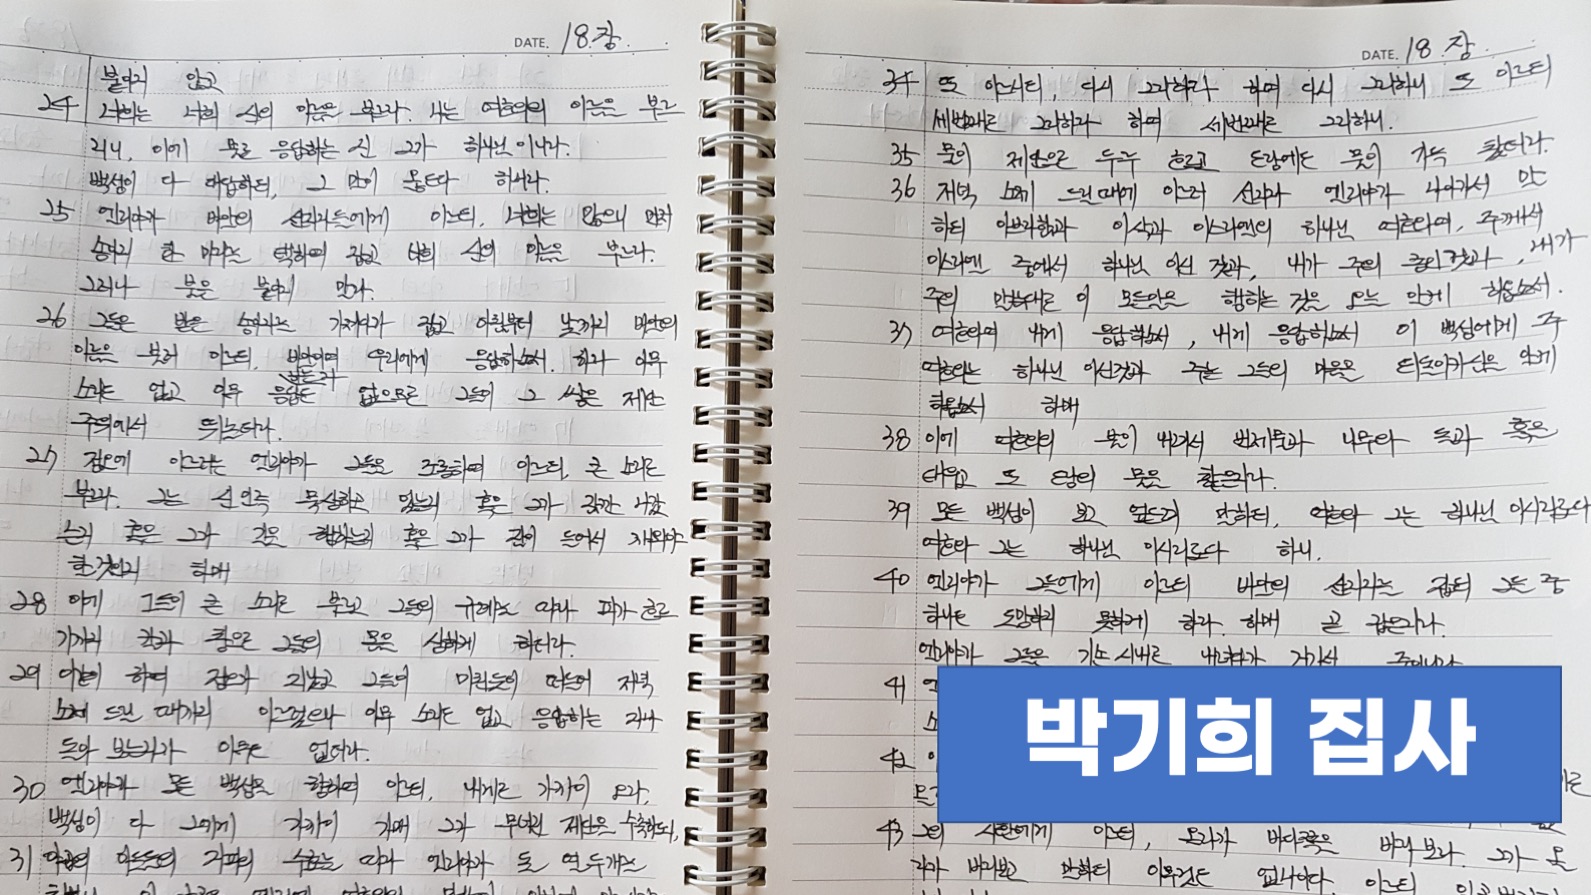 DATE. 18.장.
붙이지 않고
24 너희는 너희 신의 이름을 부르라. 나는 여호와의 이름을 부르
리니, 이에 불로 응답하는 신 그가 하나님이니라.
백성이 다 대답하되, 그 말이 옳도다 하니라.
25 엘리야가 바알의 선지자들에게 이르되, 너희는 많으니 먼저
송아지 한 마리를 택하여 잡고 너희 신의 이름을 부르라.
그러나 불을 붙이지 말라.
26 그들은 받은 송아지를 가져다가 잡고 아침부터 낮까지 바알의
이름을 불러 이르되, 바알이여 우리에게 응답하소서. 하나 아무
소리도 없고 아무 응답도 없으므로 그들이 그 쌓은 제단
주위에서 뛰놀더라.
27 정오에 이르러는 엘리야가 그들을 조롱하여 이르되, 큰 소리로
부르라. 그는 신인즉 묵상하고 있는지 혹은 그가 잠깐 나갔
는지 혹은 그가 길을 행하는지 혹은 그가 잠이 들어서 깨워야
할 것인지 하매
28 이에 그들이 큰 소리로 부르고 그들의 규례를 따라 피가 흐르
기까지 칼과 창으로 그들의 몸을 상하게 하더라.
29 이같이 하여 정오가 지났고 그들이 미친듯이 떠들어 저녁
소제 드릴 때까지 이르렀으나 아무 소리도 없고 응답하는 자나
돌아 보는자가 아무도 없더라.
30 엘리야가 모든 백성을 향하여 이르되, 내게로 가까이 오라.
백성이 다 그에게 가까이 가매 그가 무너진 제단을 수축하되,
31 야곱의 아들들의 지파의 수효를 따라 엘리야가 돌 열두개를
DATE. 18.장.
34 또 이르되, 다시 그리하라 하여 다시 그리하니 또 이르되
세번째로 그리하라 하여 세번째로 그리하니.
35 물이 제단으로 두루 흐르고 도랑에도 물이 가득 찼더라.
36 저녁 소제 드릴때에 이르러 선지자 엘리야가 나아가서 말
하되 아브라함과 이삭과 이스라엘의 하나님 여호와여, 주께서
이스라엘 중에서 하나님 이신 것과, 내가 주의 종인것과, 내가
주의 말씀대로 이 모든일을 행하는 것을 오늘 알게 하옵소서.
37 여호와여 내게 응답하소서, 내게 응답하소서 이 백성에게 주
여호와는 하나님 이신것과 주는 그들의 마음을 되돌이키심을 알게
하옵소서 하매
38 이에 여호와의 불이 내려서 번제물과 나무와 돌과 흙을
태우고 또 도랑의 물을 핥은지라.
39 모든 백성이 보고 엎드려 말하되, 여호와 그는 하나님 이시로다
여호와 그는 하나님 이시로다 하니.
40 엘리야가 그들에게 이르되 바알의 선지자를 잡되 그들 중
하나도 도망하지 못하게 하라. 하매 곧 잡은지라.
엘리야가 그들을 기손 시내로 내려다가 거기서 죽이니라
41
42
43 그의 사환에게 이르되, 올라가 바다쪽을 바라보라. 그가 올
라가 바라보고 말하되 아무것도 없나이다. 이르되
박기희 집사